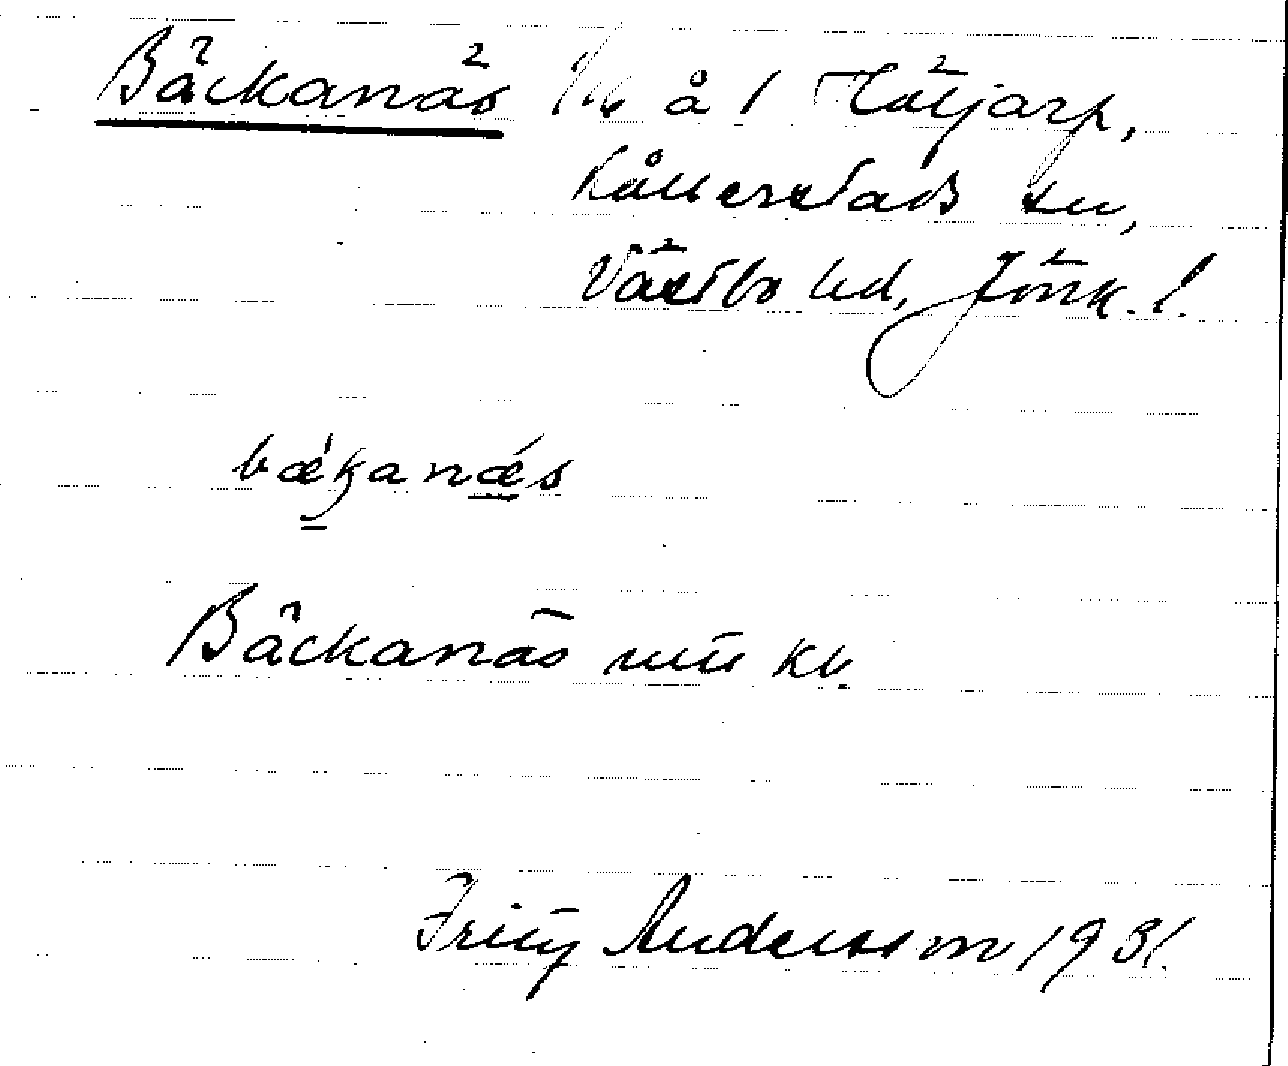 Bäckanäs å 1 Tätjarp,
Kållerstads sn,
Västbo hd, Jönk. l.
bækanæs
Bäckanäs kv.
Fritz Andersson 1931.